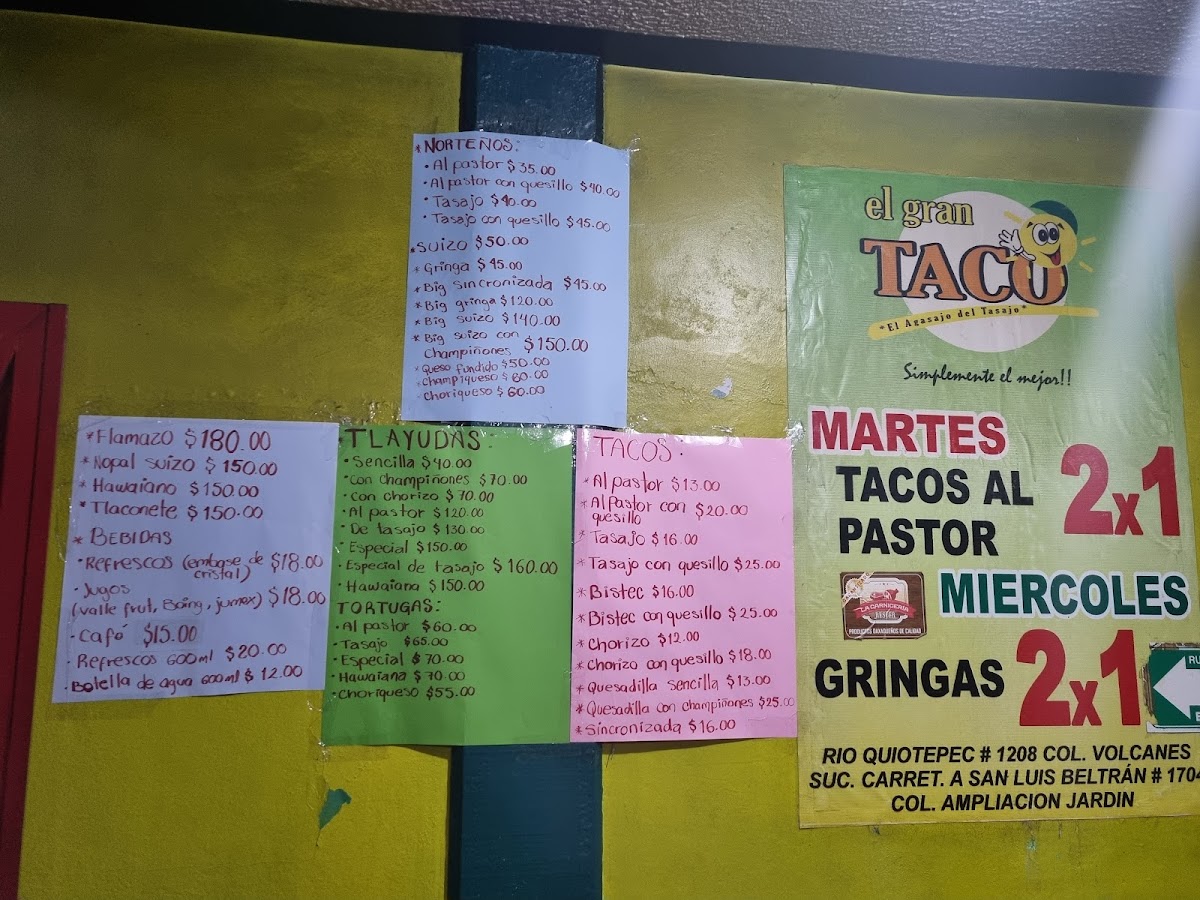 *NORTEÑOS:
• Al pastor $35.00
• Al pastor con quesillo $40.00
• Tasajo $40.00
• Tasajo con quesillo $45.00
• SUIZO $50.00
* Gringa $45.00
* Big sincronizada $45.00
* Big gringa $120.00
* Big suizo $140.00
* Big suizo con
Champiñones $150.00
* Queso fundido $50.00
* Champiqueso $60.00
* Choriqueso $60.00
*Flamazo $180.00
*Nopal suizo $150.00
* Hawaiano $150.00
* Tlaconete $150.00
* BEBIDAS
• Refrescos (embase de
cristal) $18.00
• Jugos
(valle frut, Boing, jumex) $18.00
• Café $15.00
• Refrescos 600ml $20.00
• Botella de agua 600ml $12.00
TLAYUDAS:
• Sencilla $40.00
• con champiñones $70.00
• con chorizo $70.00
• Al pastor $120.00
• De tasajo $130.00
• Especial $150.00
• Especial de tasajo $160.00
• Hawaiana $150.00
TORTUGAS:
• Al pastor $60.00
• Tasajo $65.00
• Especial $70.00
• Hawaiana $70.00
• Choriqueso $55.00
TACOS:
* Al pastor $13.00
* Al Pastor con
quesillo $20.00
* Tasajo $16.00
* Tasajo con quesillo $25.00
* Bistec $16.00
* Bistec con quesillo $25.00
* Chorizo $12.00
* Chorizo con quesillo $18.00
* Quesadilla sencilla $13.00
* Quesadilla con champiñones $25.00
* Sincronizada $16.00
el gran
TACO
"El Agasajo del Tasajo"
Simplemente el mejor!!
MARTES
TACOS AL
PASTOR
2x1
LA CARNICERÍA
PRODUCTOS OAXAQUEÑOS DE CALIDAD
MIERCOLES
GRINGAS 2x1
RU
RIO QUIOTEPEC # 1208 COL. VOLCANES
SUC. CARRET. A SAN LUIS BELTRÁN # 1704
COL. AMPLIACION JARDIN